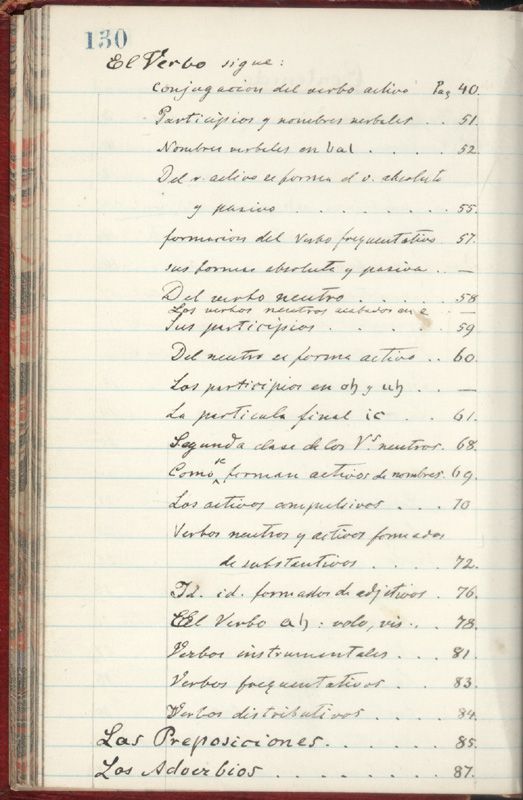 130
El Verbo sigue:
Conjugacion del verbo activo Pag 40.
Participios y nombres verbales . . 51.
Nombres verbales en bal . . . . 52.
Del v. activo se forma el v. absoluto
y pasivo . . . . . . . . 55.
formacion del Verbo frequentativo 57.
sus formas absoluta y pasiva . . —
Del verbo neutro . . . . . 58
Los verbos neutros acabados en e . . —
Sus participios . . . . . 59
Del neutro se forma activo . . 60.
Los participios en oh y uh . . —
La particula final ic . . 61.
Segunda clase de los Vs. neutros. 68.
Como se forman activos de nombres. 69.
Los activos compulsivos . . . 70
Verbos neutros y activos formados
de substantivos . . . . 72.
Id. id. formados de adjetivos . 76.
El Verbo ah : volo, vis . . 78.
Verbos instrumentales . . . 81
Verbos frequentativos . . . 83.
Verbos distributivos . . . . 84.
Las Preposiciones . . . . . . 85.
Los Adverbios . . . . . . . . 87.